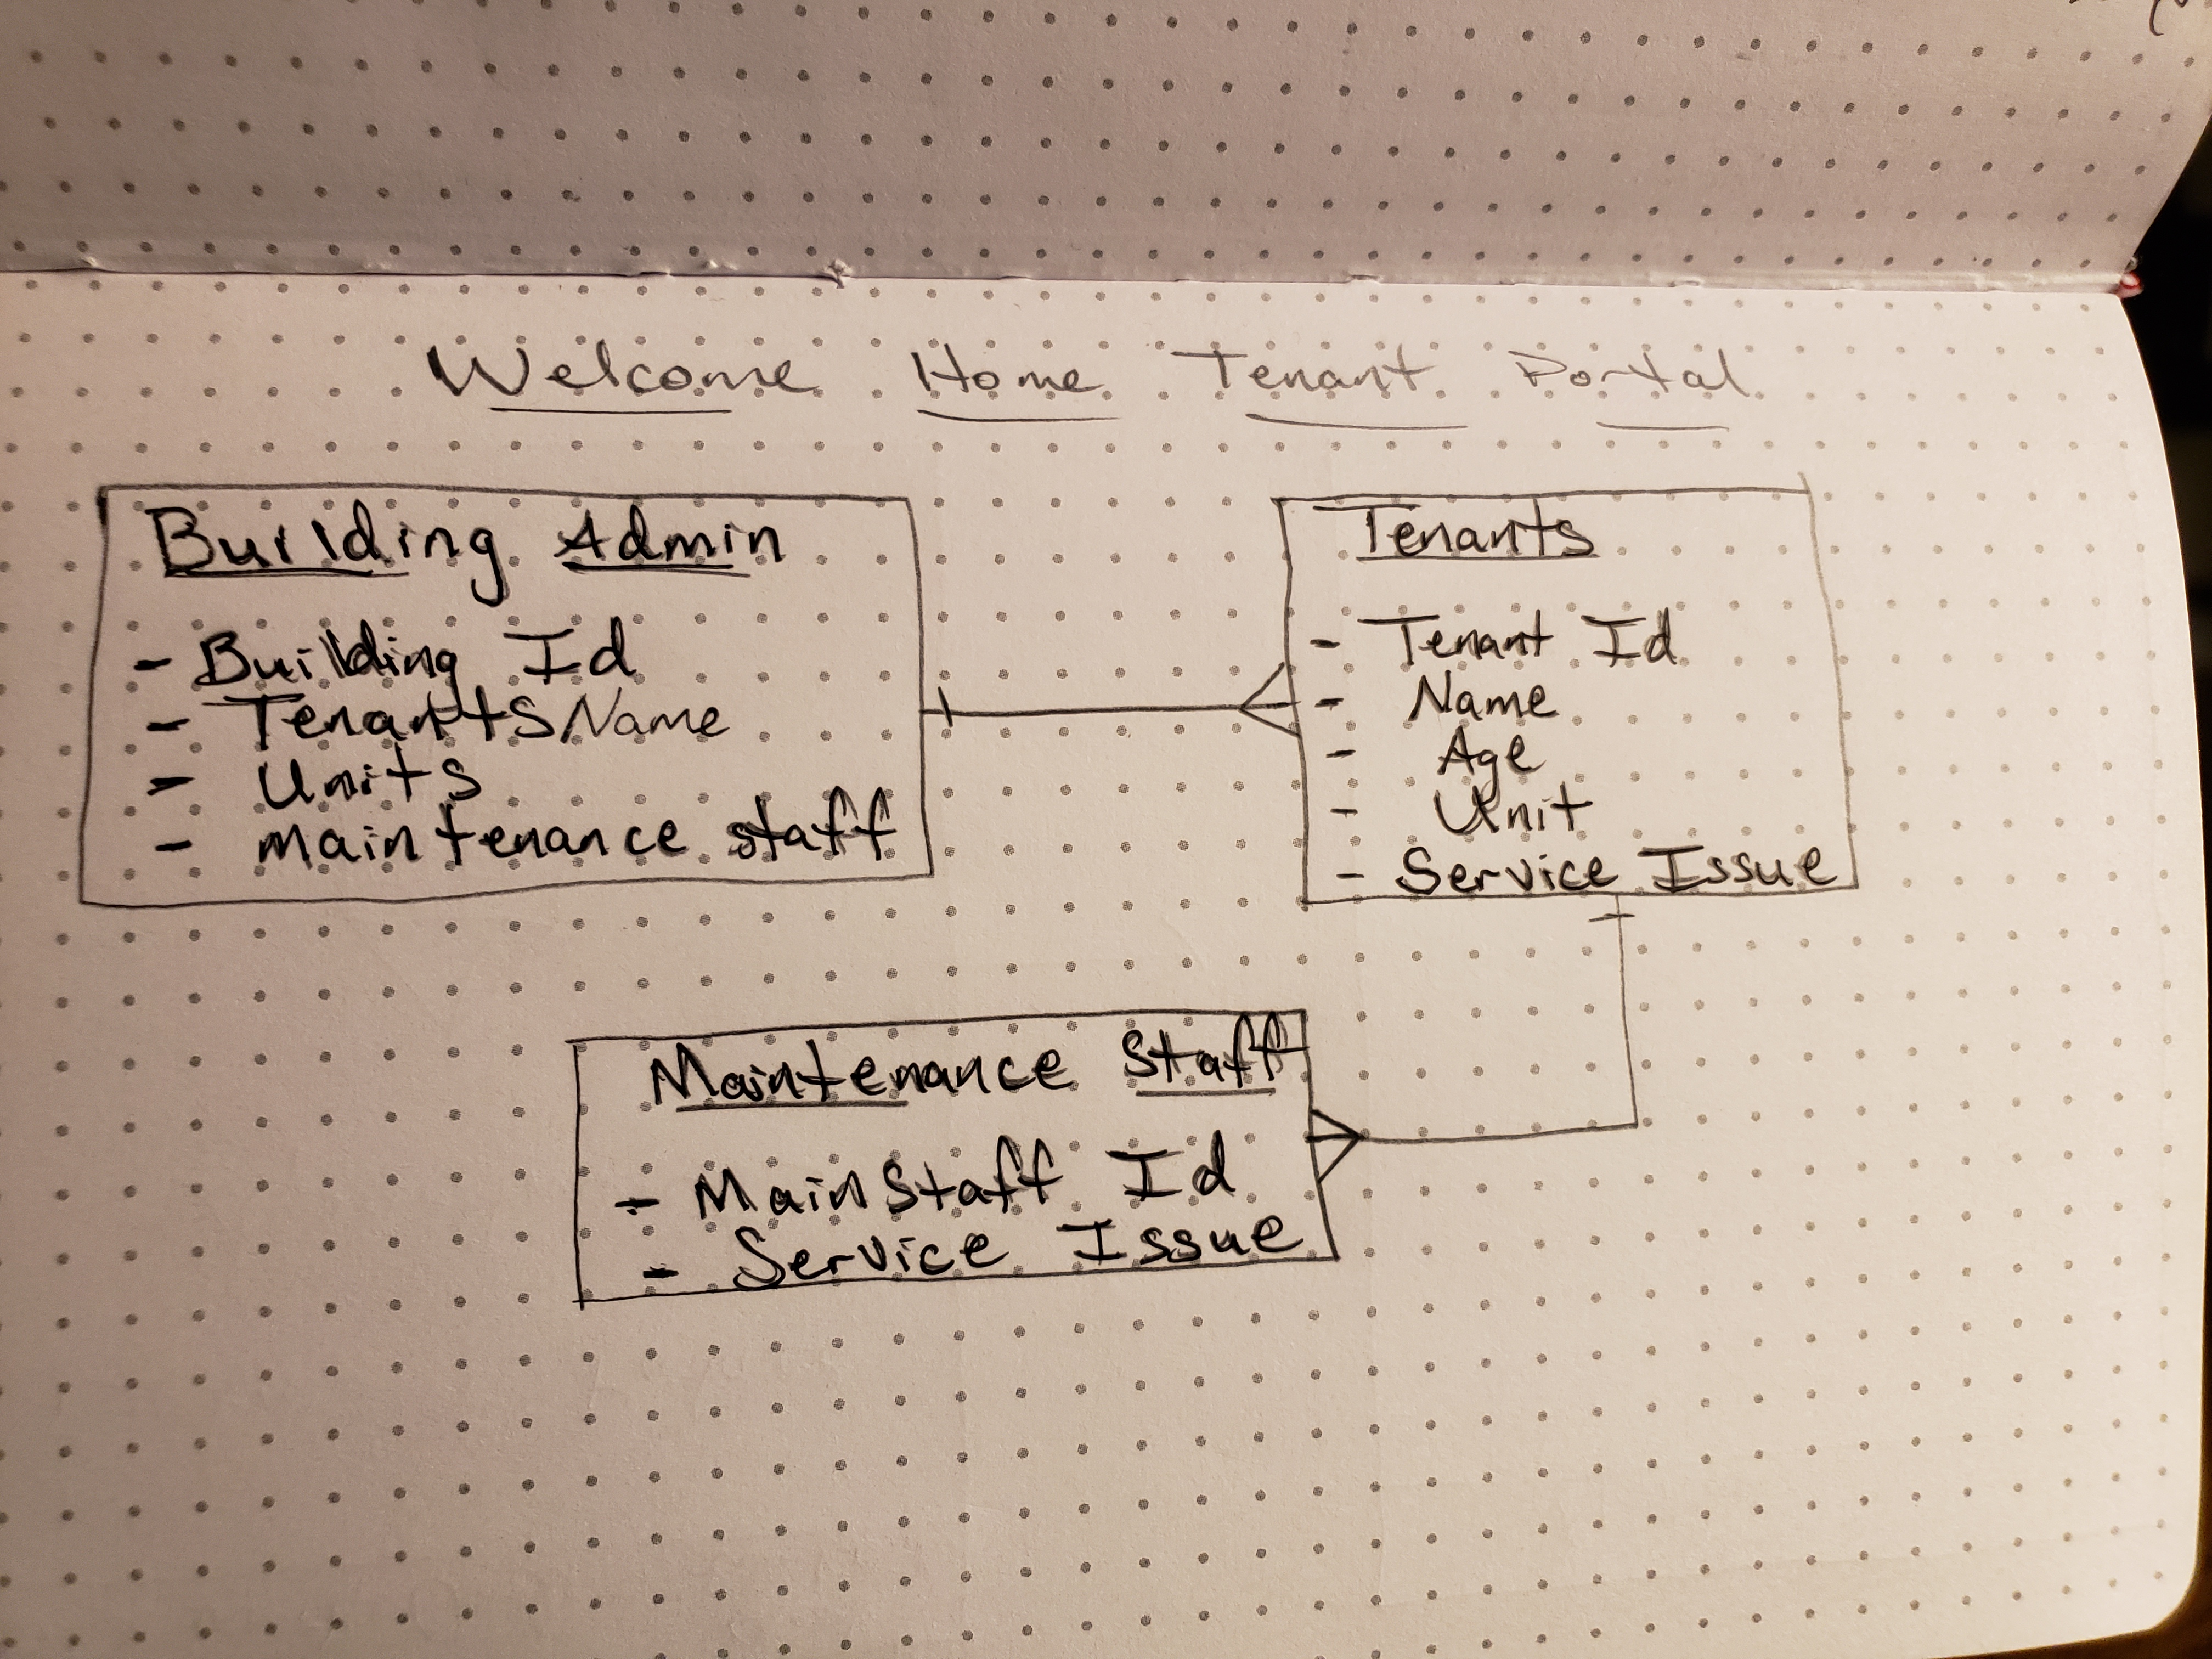 Welcome Home Tenant Portal
Building Admin
- Building Id
- Tenants Name
- Units
- maintenance staff
Tenants
- Tenant Id
- Name
- Age
- Unit
- Service Issue
Maintenance Staff
- Main Staff Id
- Service Issue